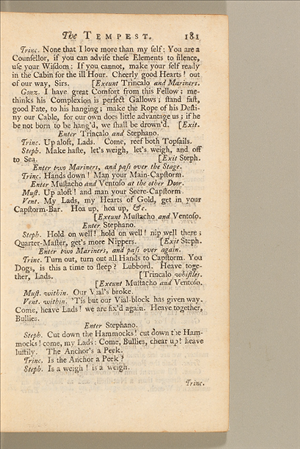 The TEMPEST. 181
Trinc. None that I love more than my self: You are a
Counsellor, if you can advise these Elements to silence,
use your Wisdom: If you cannot, make your self ready
in the Cabin for the ill Hour. Cheerly good Hearts! out
of our way, Sirs. [Exeunt Trincalo and Mariners.
Gonz. I have great Comfort from this Fellow; me-
thinks his Complexion is perfect Gallows; stand fast,
good Fate, to his hanging; make the Rope of his Desti-
ny our Cable, for our own does little advantage us; if he
be not born to be hang'd, we shall be drown'd. [Exit.
Enter Trincalo and Stephano.
Trinc. Up aloft, Lads. Come, reef both Topsails.
Steph. Make haste, let's weigh, let's weigh, and off
to Sea. [Exit Steph.
Enter two Mariners, and pass over the Stage.
Trinc. Hands down! Man your Main-Capstorm.
Enter Mustacho and Ventoso at the other Door.
Must. Up aloft! and man your Seere-Capstorm.
Vent. My Lads, my Hearts of Gold, get in your
Capstorm-Bar. Hoa up, hoa up, &c.
[Exeunt Mustacho and Ventoso.
Enter Stephano.
Steph. Hold on well! hold on well! nip well there;
Quarter-Master, get's more Nippers. [Exit Steph.
Enter two Mariners, and pass over again.
Trinc. Turn out, turn out all Hands to Capstorm. You
Dogs, is this a time to sleep? Lubbord. Heave toge-
ther, Lads. [Trincalo whistles.
[Exeunt Mustacho and Ventoso.
Must. within. Our Vial's broke.
Vent. within. 'Tis but our Vial-block has given way.
Come, heave Lads! we are fix'd again. Heave together,
Bullies.
Enter Stephano.
Steph. Cut down the Hammocks! cut down the Ham-
mocks! come, my Lads: Come, Bullies, chear up! heave
lustily. The Anchor's a Peek.
Trinc. Is the Anchor a Peek?
Steph. Is a weigh! is a weigh.
Trinc.